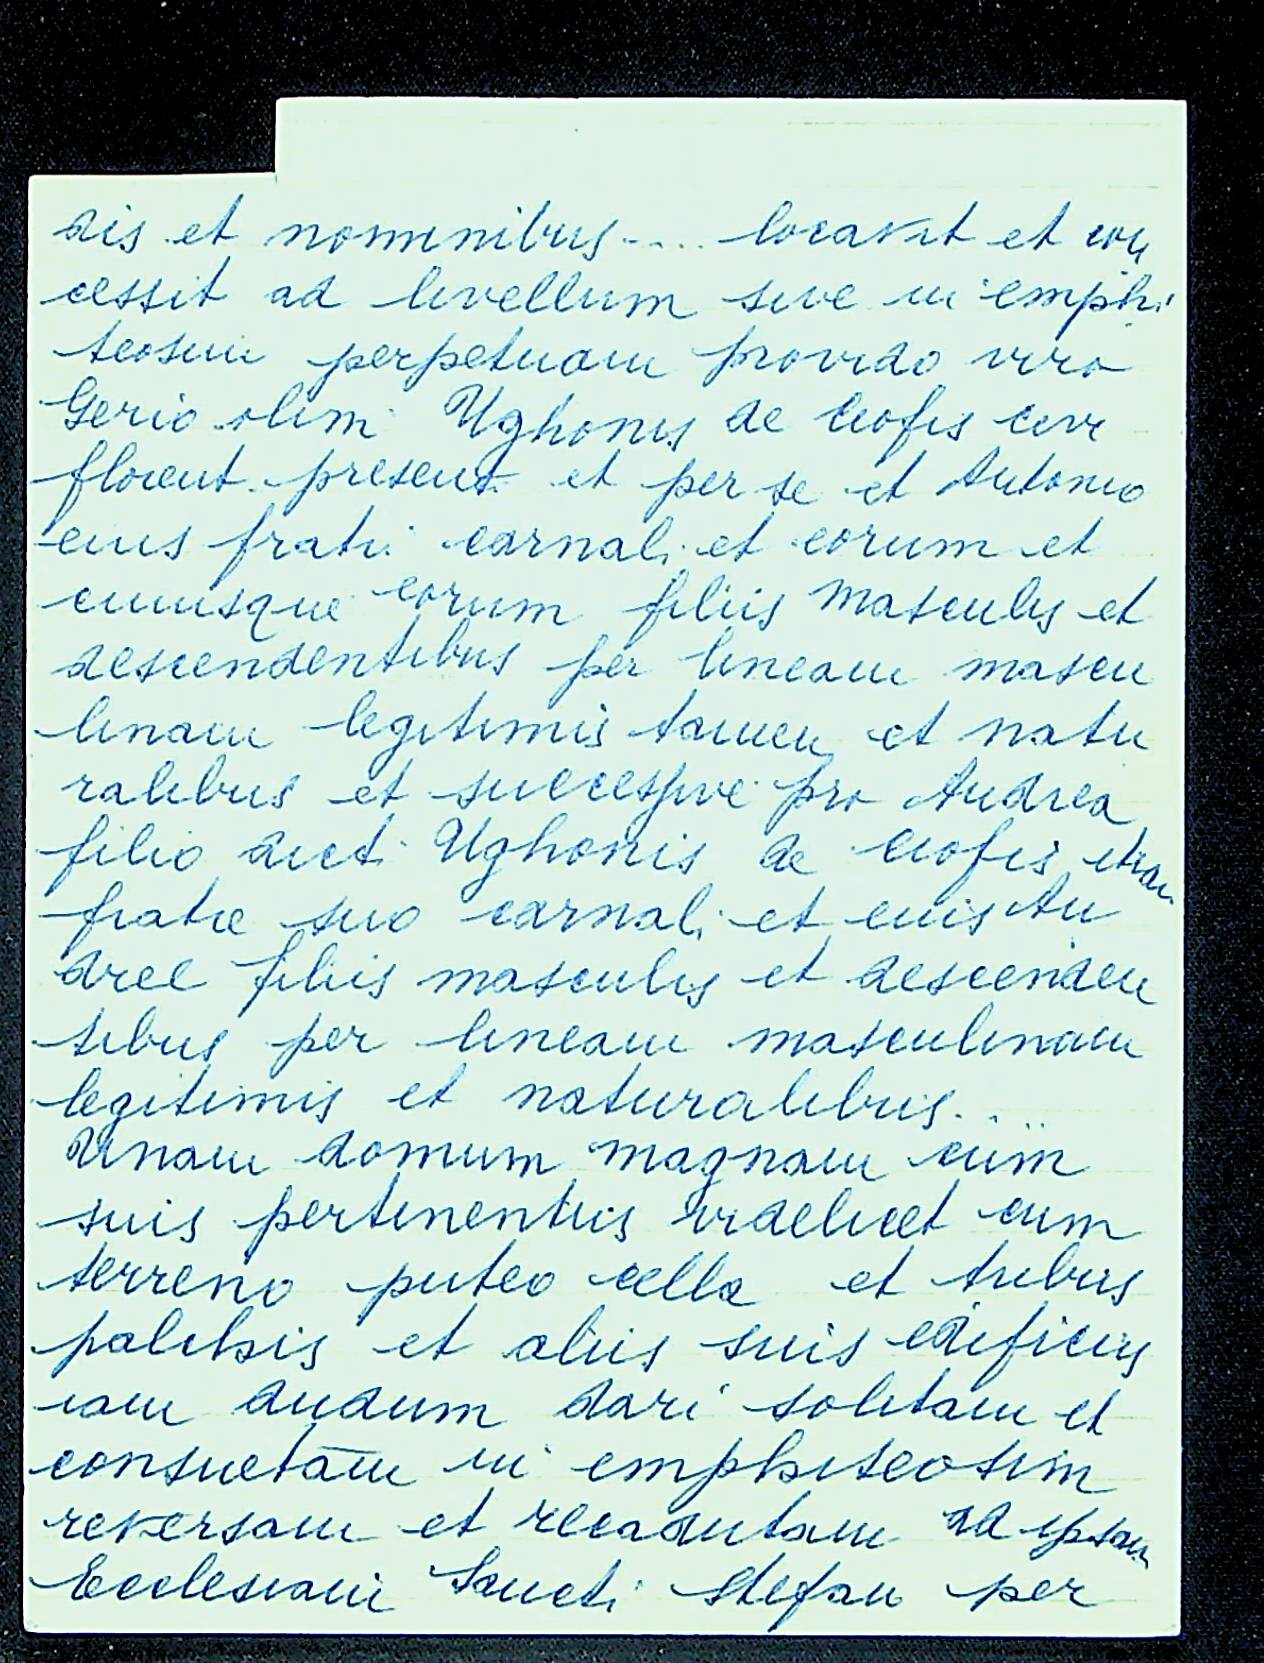 dis et nominibus .... locavit et con
cessit ad livellum sive in emphi
teosim perpetuam provido viro
Gerio olim Ughonis de Ciofis cive
florent. present. et per se et Antonio
eius fratri carnali et eorum et
cuiusque eorum filiis masculis et
descendentibus per lineam mascu
linam legitimis tamen et natu
ralibus et successive pro Andrea
filio dicti Ughonis de Ciofis etiam
fratre suo carnali et eius An
dree filiis masculis et descenden
tibus per lineam masculinam
legitimis et naturalibus. ...
Unam domum magnam cum
suis pertinentiis videlicet cum
terreno puteo cella et tribus
palchis et aliis suis edificiis
iam dudum dari solitam et
consuetam in emphiteosim
reversam et recadutam ad ipsam
Ecclesiam Sancti Stefani per